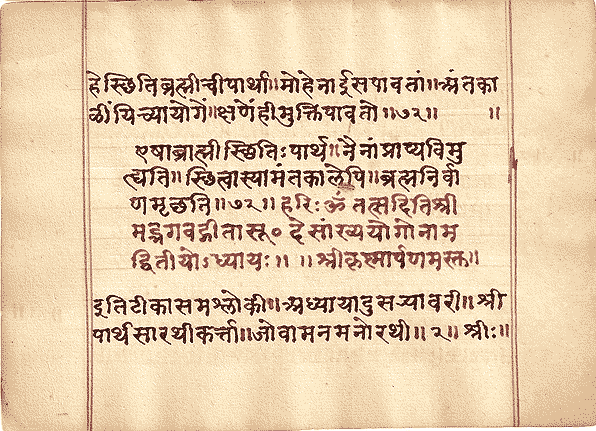 हे स्थिति ब्राह्मी ची पार्था॥ मोहे ना ईस पावतां॥ अंतका
ळीं यिच्या योगें॥ क्षणें ही मुक्ति पावतो॥७२॥ ॥
एषा ब्राह्मी स्थितिः पार्थ॥ नैनां प्राप्य विमु
त्द्यति॥ स्थित्वास्यामंतकालेपि॥ ब्रह्मनिर्वा
णमृछति॥७२॥ हरिः ॐ तत्सदिति श्री
मद्भगवद्गीतासू० दे सांख्ययोगो नाम
द्वितीयोऽध्यायः॥ ॥ श्रीकृष्णार्पणमस्तु॥
इति टीका समश्लोकी॥ अध्याया दुसऱ्यावरी॥ श्री
पार्थसारथी कर्त्ता॥ जो वामनमनोरथी॥२॥ श्रीः॥